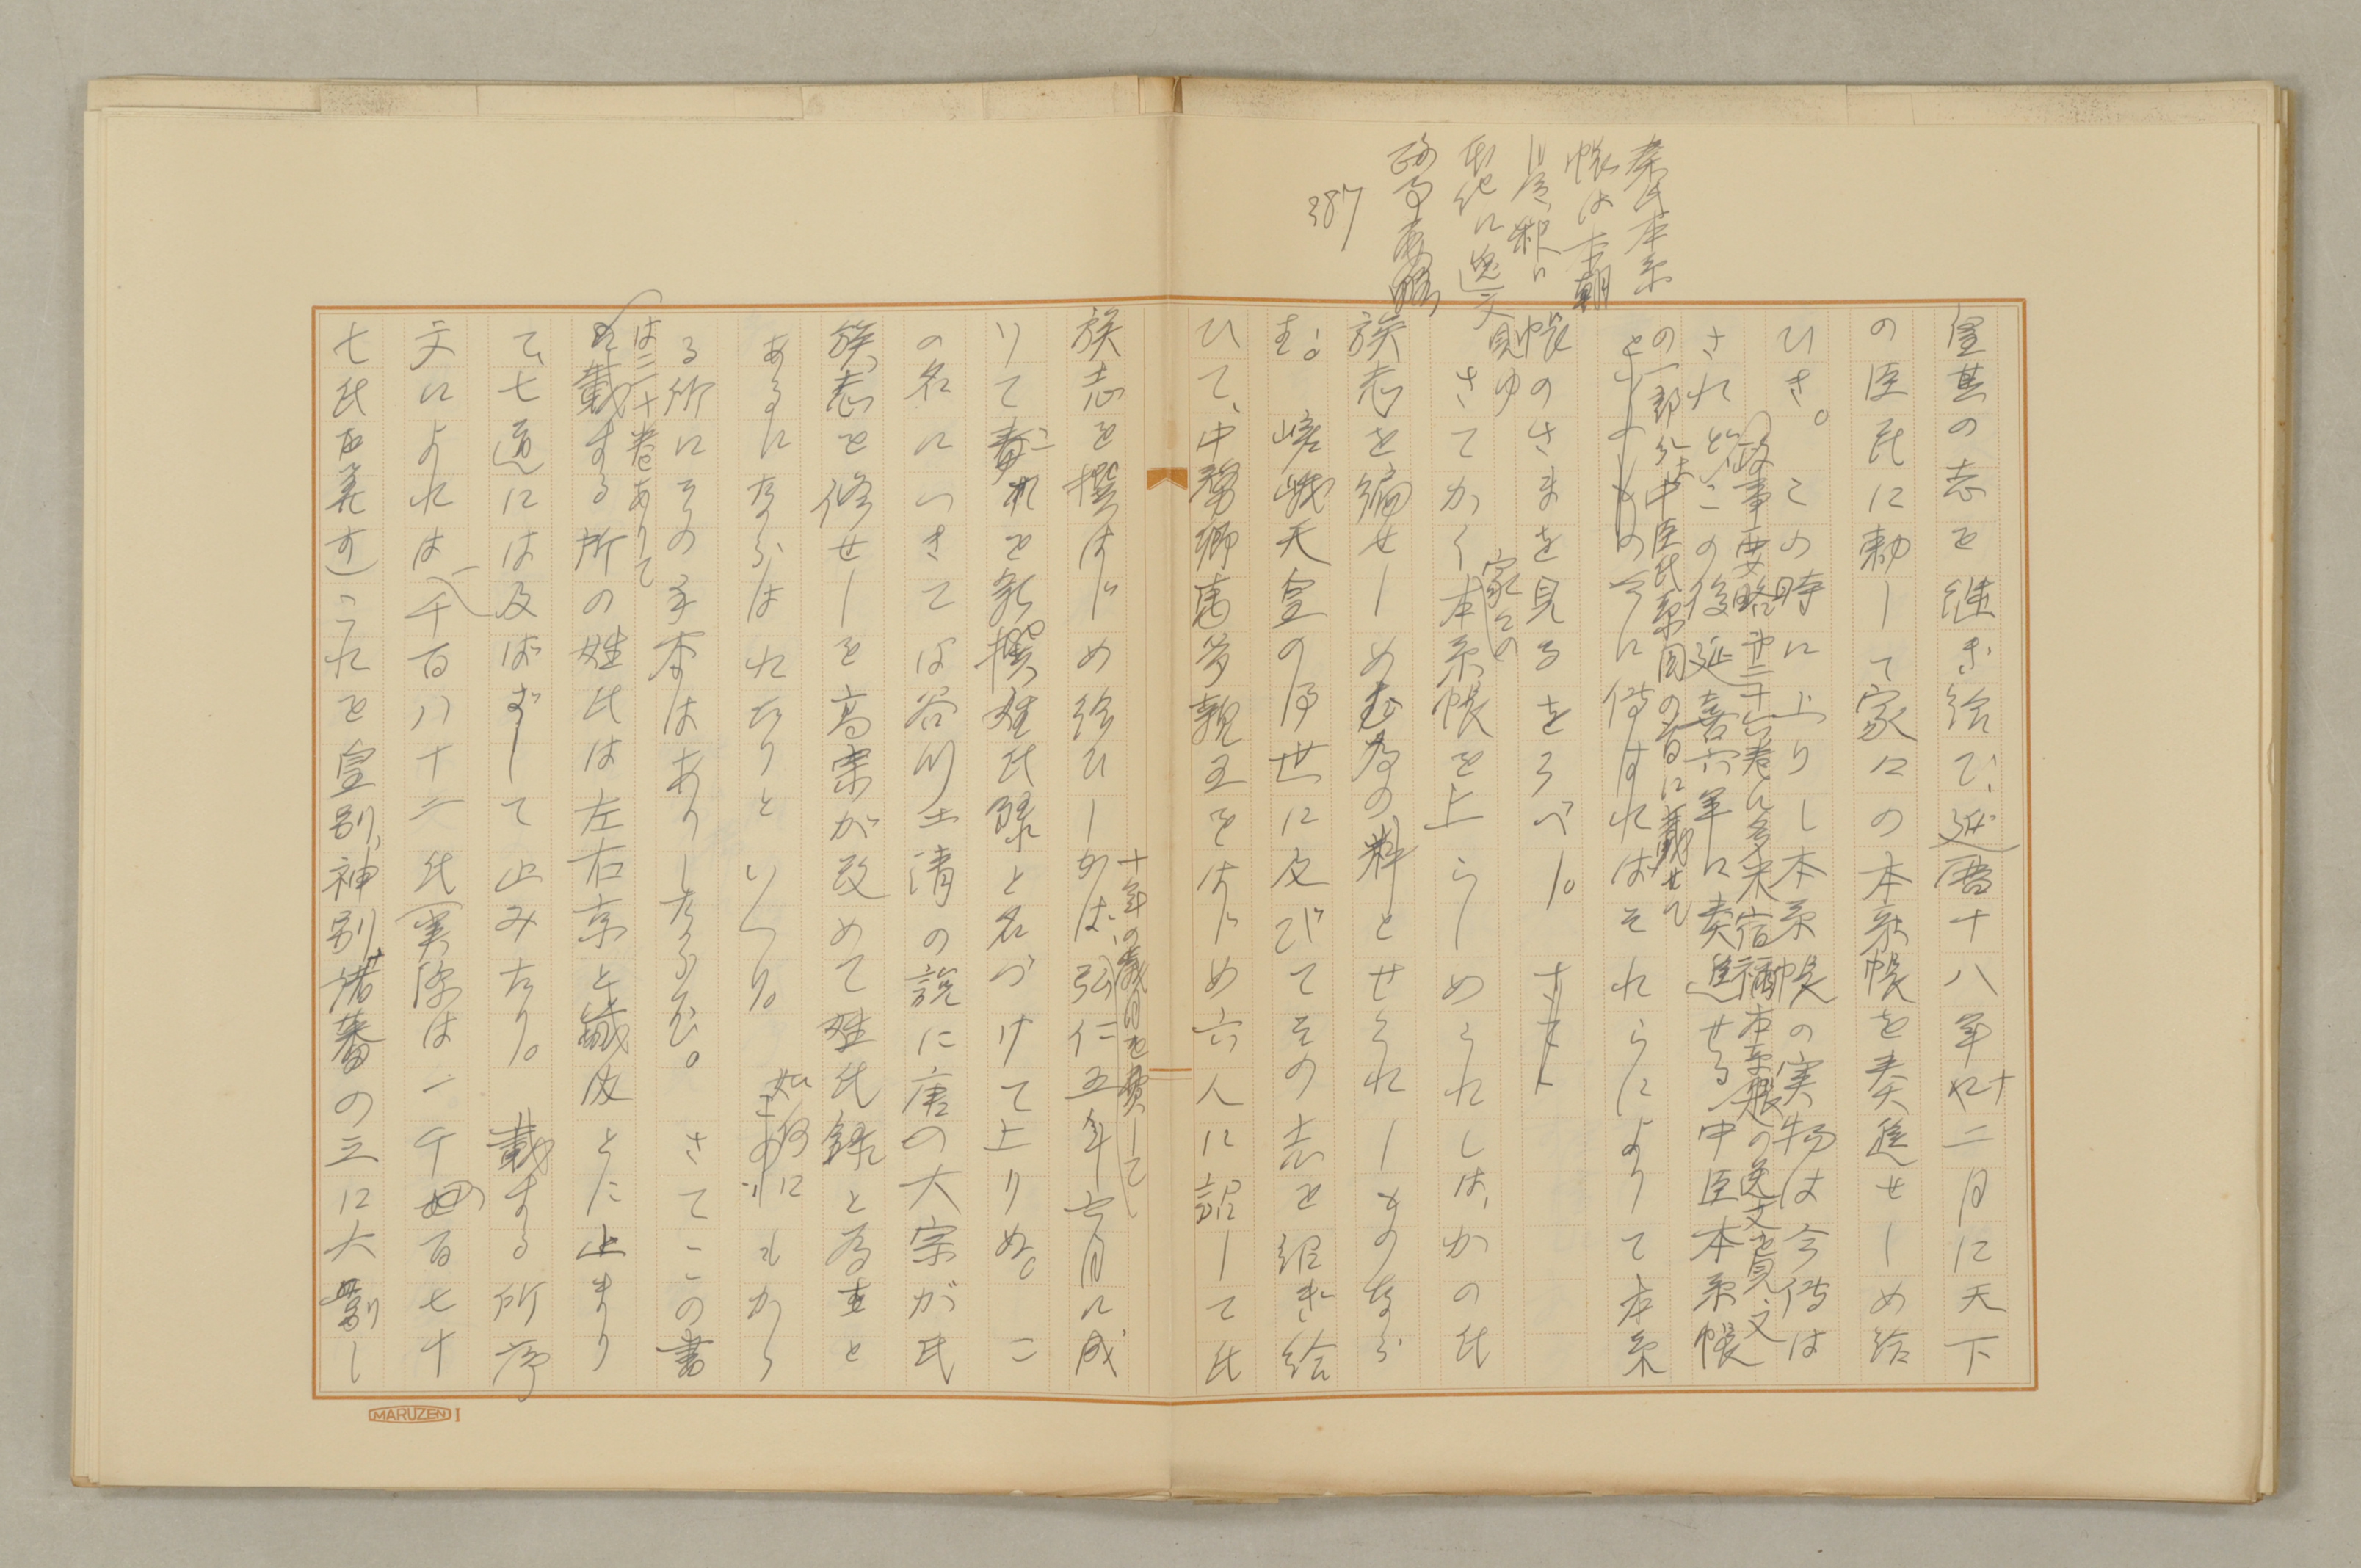 秦氏本系
帳は本朝
月令、
に逸文
見ゆ
政事要略
387
皇其の志を継ぎ給ひ、延暦十八年十二月に天下
の臣民に勅して家々の本系帳を奏進せしめ給
ひき。この時に上りし本系帳の実物は今傳は
(政事要略第二十六巻に多米宿禰本系帳の逸文を見、又
されど、この後延喜六年に奏進せる中臣本系帳
の一部分は中臣氏系図の首に載せて
今に傳はればそれらによりて本系
帳のさまを見るをうべし。
さてかく家々の本系帳を上らしめられしは、かの氏
族志を編せしめむ為の料とせられしものなら
む。嵯峨天皇の御世に及びてその志を紹ぎ給
ひて、中務卿萬多親王をはじめ六人に詔して氏
族志を撰はしめ給ひしかば、弘仁五年六月に成
十年の歳月を費して
りてこれを新撰姓氏録と名づけて上りぬ。こ
の名につきては谷川士清の説に唐の大宗が氏
族志を修せしを高宗が改めて姓氏録と為すと
あるにならはれたりといへり。如何にもかゝ
る所にその手本はありしならむ。さてこの書
は三十巻ありて
載する所の姓氏は左右京と畿内とに止まり
て、七道には及ばずして止みたり。載する所序
文によれば一千百八十二氏(実際は一千百七十
七氏を算す)これを皇別、神別、諸蕃の三に大別し
MARUZEN I